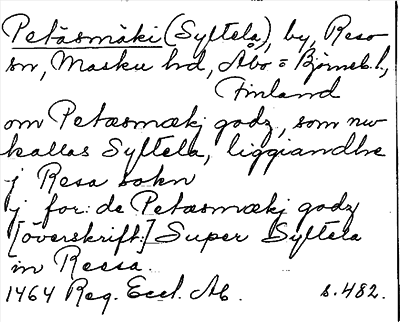 Petäsmäki (Syftela), by, Reso
sn, Masku hd, Åbo = Björneb. l.,
Finland
om Petæsmækj godz, som nw
kallas Syftela, liggiandhe
j Resa sokn
j. for. de Petæsmækj godz
[överskrift:] Super Syftela
in Reesa.
1464 Reg. Eccl. Ab. s. 482.